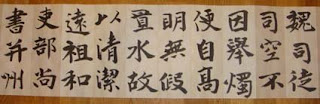 魏司徒
司空不
因舉燭
便自高
明無假
置水故
以清潔
遠祖和
吏部尚
書并州